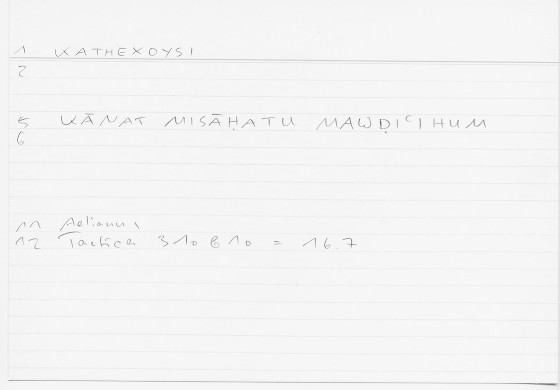 1 KATHEXOYSI
2
5 KĀNAT MISĀḤATU MAWḌIʿIHUM
6
11 Aelianus
12 Tactica 310 B 10 = 16.7